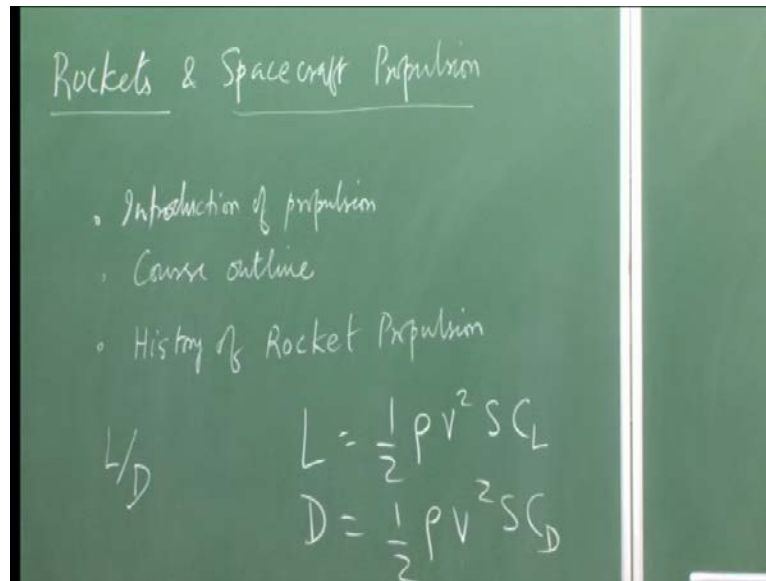 Rockets & Spacecraft Propulsion
• Introduction of propulsion
• Course outline
• History of Rocket Propulsion
L/D
L = 1/2 ρ V² S C_L
D = 1/2 ρ V² S C_D